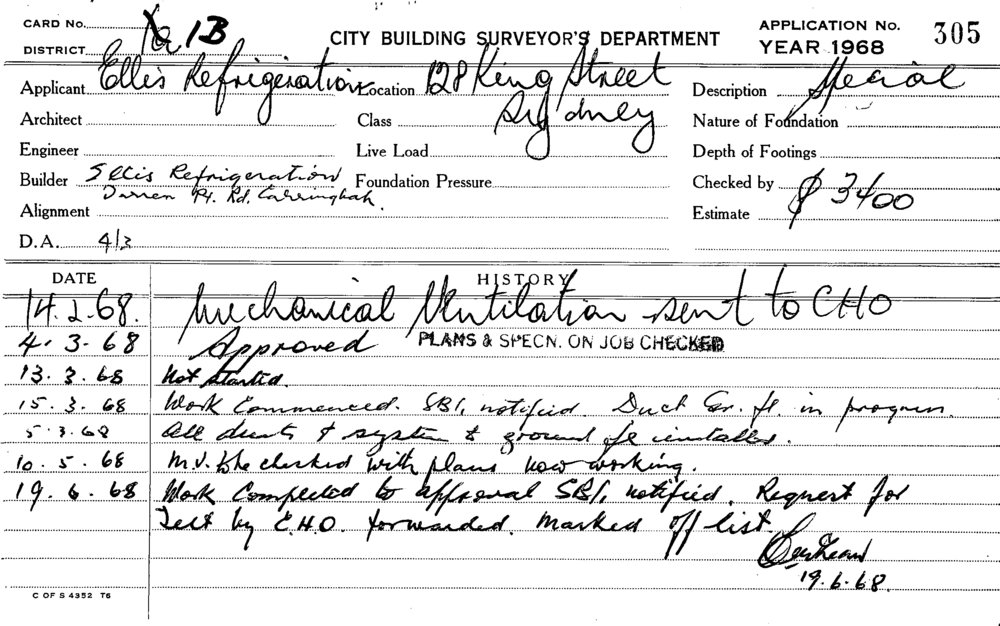 CARD No. 1B
DISTRICT
CITY BUILDING SURVEYOR'S DEPARTMENT
APPLICATION No. 305
YEAR 1968
Applicant Ellis Refrigeration Location 128 King Street Sydney Description Special
Architect Class Nature of Foundation
Engineer Live Load Depth of Footings
Builder Ellis Refrigeration Foundation Pressure Checked by
Pt. Rd. Carringbah.
Alignment Estimate $ 3400
D.A. 4/3
DATE HISTORY
14.2.68. Mechanical Ventilation sent to CHO
4.3.68 Approved PLANS & SPECN. ON JOB CHECKED
13.3.68 Not started.
15.3.68 Work Commenced. SBI, notified. Duct Gr. fl. in progress.
5.3.68 All ducts & system to ground fl installed.
10.5.68 M.V. to be checked with plans now working.
19.6.68 Work Completed to approval SBI, notified. Request for
Test by C.H.O. forwarded. Marked off list.
19.6.68.
C OF S 4352 T6